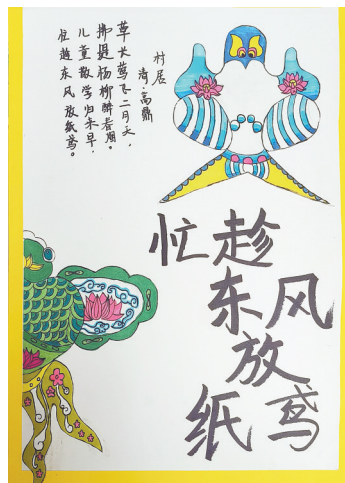 村居
清·高鼎
草长莺飞二月天，
拂堤杨柳醉春烟。
儿童散学归来早，
忙趁东风放纸鸢。
忙趁
东风
放
纸鸢